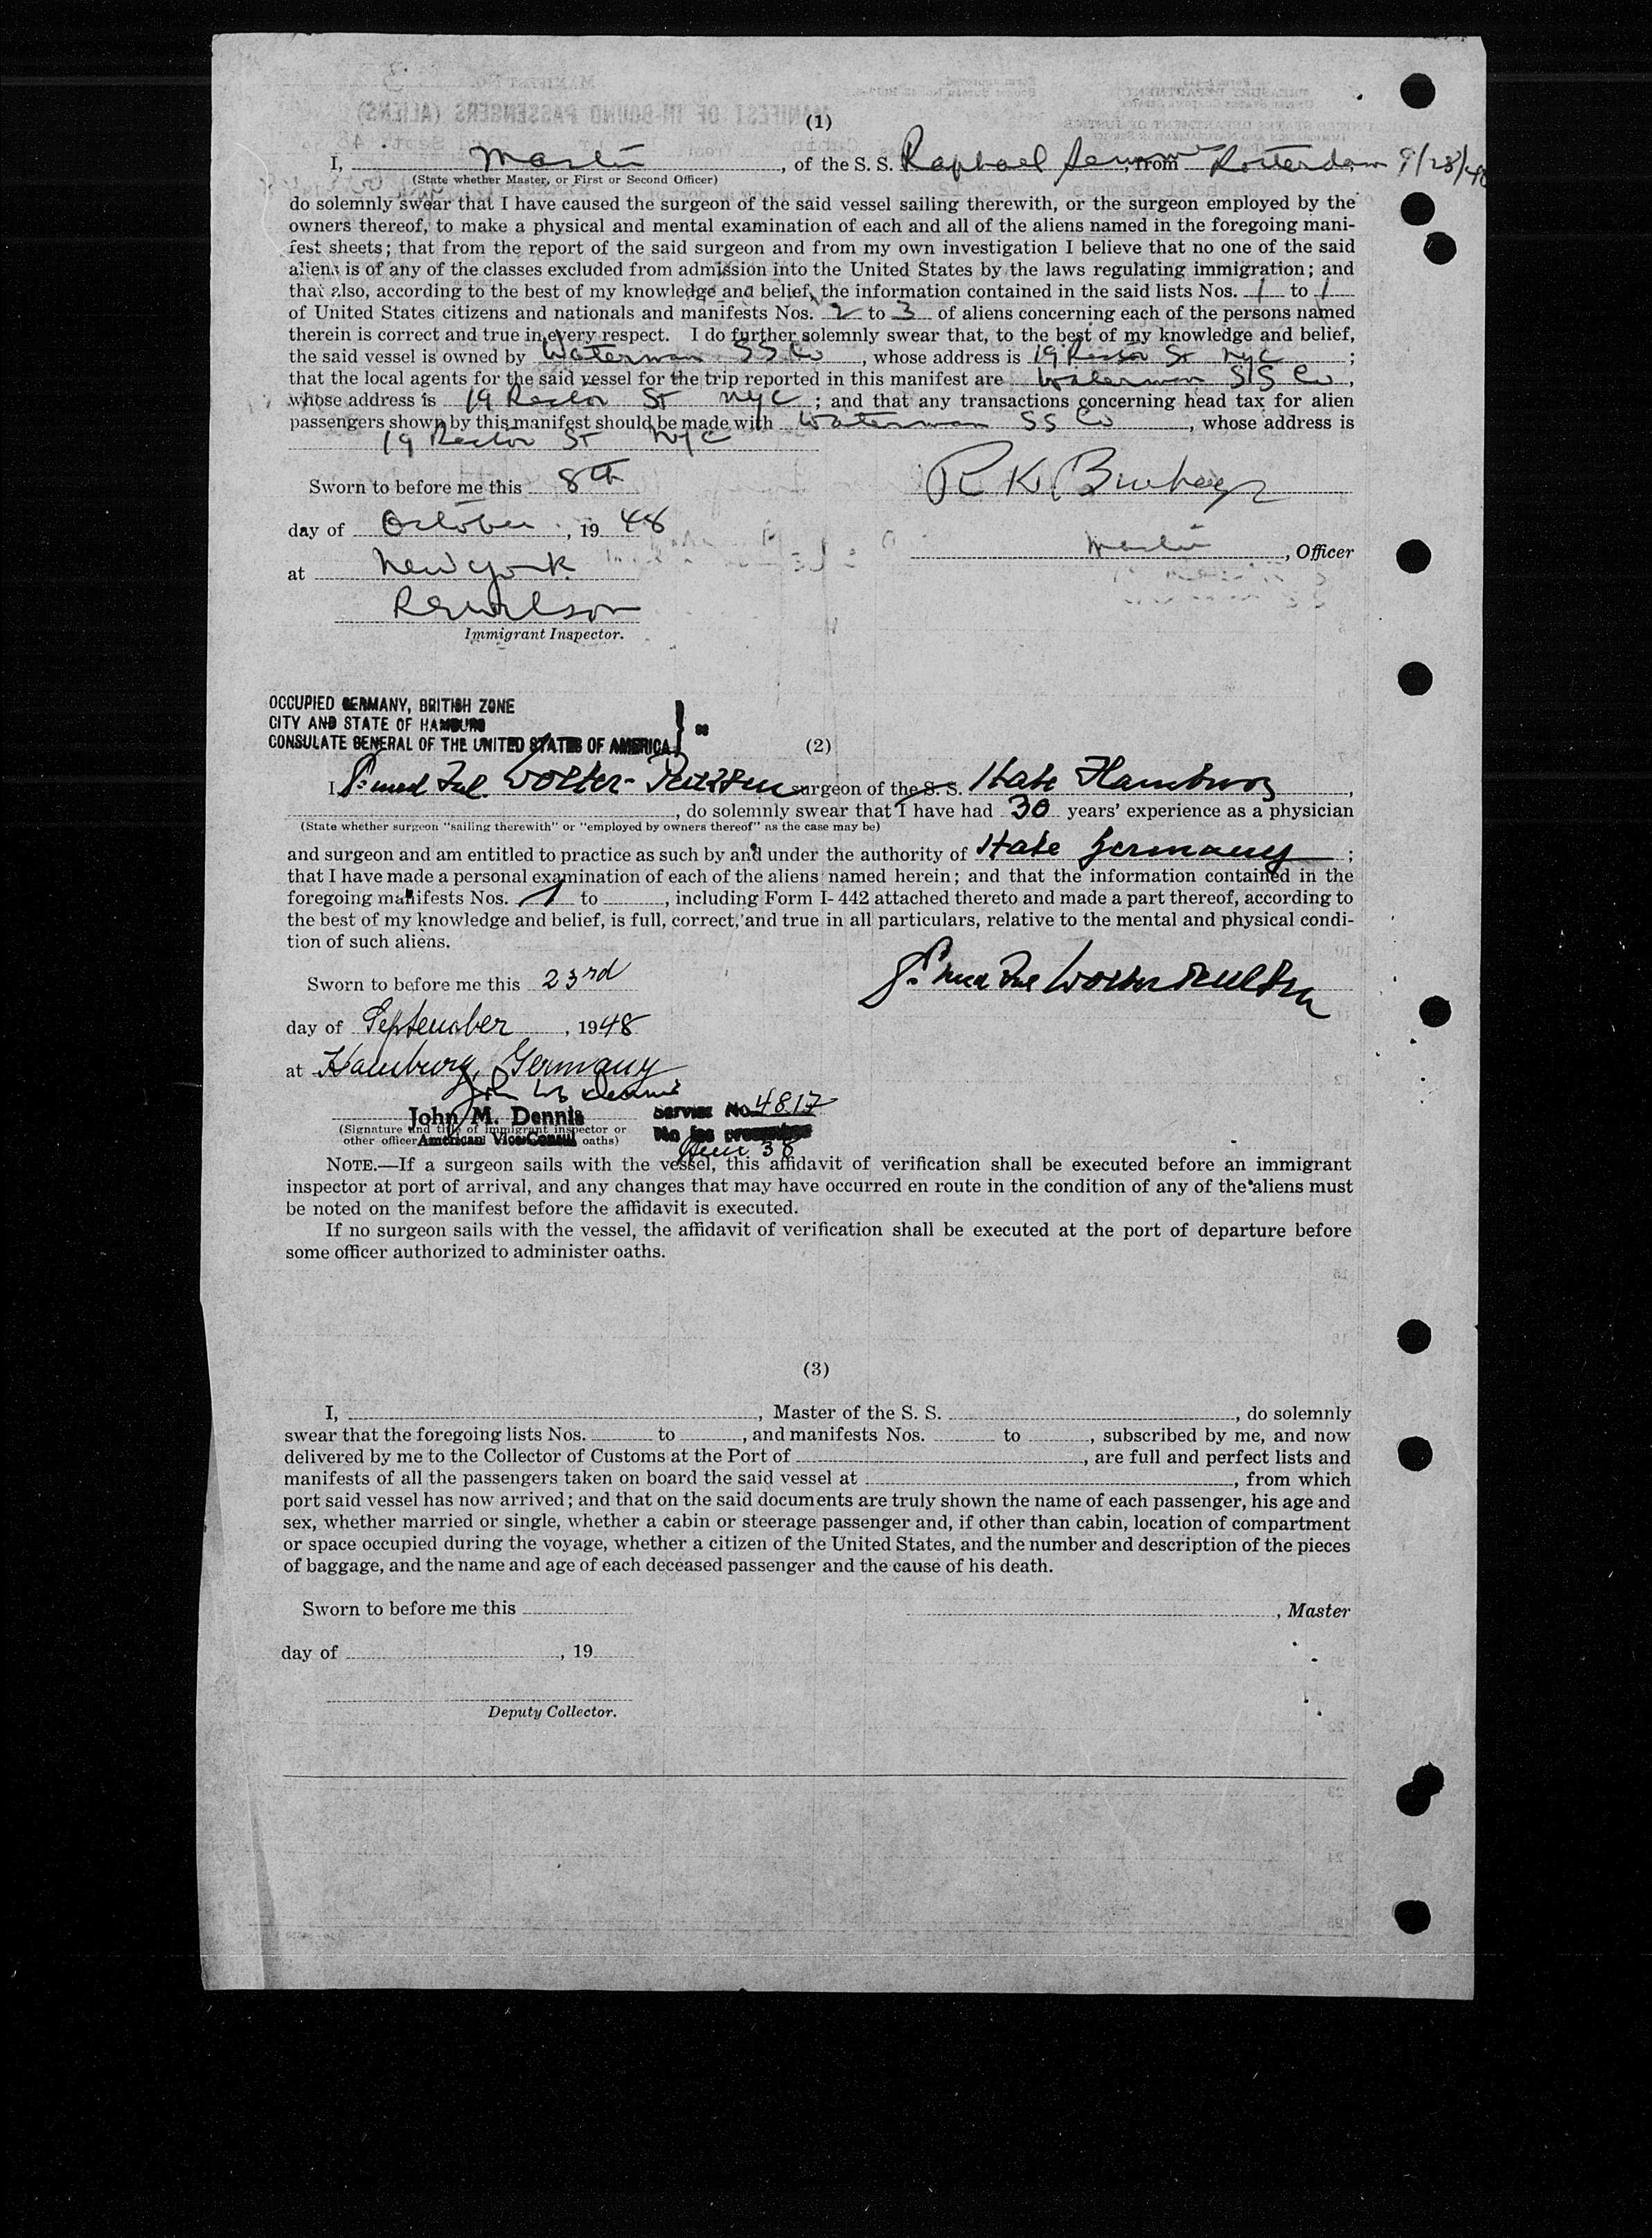 (1)
I, Master, of the S. S. Raphael Semmes, from Rotterdam 9/28/48
(State whether Master, or First or Second Officer)
do solemnly swear that I have caused the surgeon of the said vessel sailing therewith, or the surgeon employed by the
owners thereof, to make a physical and mental examination of each and all of the aliens named in the foregoing mani-
fest sheets; that from the report of the said surgeon and from my own investigation I believe that no one of the said
aliens is of any of the classes excluded from admission into the United States by the laws regulating immigration; and
that also, according to the best of my knowledge and belief, the information contained in the said lists Nos. 1 to 1
of United States citizens and nationals and manifests Nos. 2 to 3 of aliens concerning each of the persons named
therein is correct and true in every respect. I do further solemnly swear that, to the best of my knowledge and belief,
the said vessel is owned by Waterman SS Co, whose address is 19 Rector St NYC;
that the local agents for the said vessel for the trip reported in this manifest are Waterman S/S Co,
whose address is 19 Rector St NYC; and that any transactions concerning head tax for alien
passengers shown by this manifest should be made with Waterman SS Co, whose address is
19 Rector St NYC
Sworn to before me this 8th
R K
day of October, 1948
Master, Officer
at New York
R E Wilson
Immigrant Inspector.
OCCUPIED GERMANY, BRITISH ZONE
CITY AND STATE OF HAMBURG
CONSULATE GENERAL OF THE UNITED STATES OF AMERICA } ss
(2)
I Wolter- surgeon of the S. S. State Hamburg,
, do solemnly swear that I have had 30 years' experience as a physician
(State whether surgeon "sailing therewith" or "employed by owners thereof" as the case may be)
and surgeon and am entitled to practice as such by and under the authority of State Germany;
that I have made a personal examination of each of the aliens named herein; and that the information contained in the
foregoing manifests Nos. 1 to , including Form I-442 attached thereto and made a part thereof, according to
the best of my knowledge and belief, is full, correct, and true in all particulars, relative to the mental and physical condi-
tion of such aliens.
Sworn to before me this 23rd
day of September, 1948
at Hamburg, Germany
John M Dennis
John M. Dennis Service No. 4817
(Signature and title of immigrant inspector or
other officer American Vice Consul oaths) No fee prescribed
Item 38
NOTE.—If a surgeon sails with the vessel, this affidavit of verification shall be executed before an immigrant
inspector at port of arrival, and any changes that may have occurred en route in the condition of any of the aliens must
be noted on the manifest before the affidavit is executed.
If no surgeon sails with the vessel, the affidavit of verification shall be executed at the port of departure before
some officer authorized to administer oaths.
(3)
I, , Master of the S. S. , do solemnly
swear that the foregoing lists Nos. to , and manifests Nos. to , subscribed by me, and now
delivered by me to the Collector of Customs at the Port of , are full and perfect lists and
manifests of all the passengers taken on board the said vessel at , from which
port said vessel has now arrived; and that on the said documents are truly shown the name of each passenger, his age and
sex, whether married or single, whether a cabin or steerage passenger and, if other than cabin, location of compartment
or space occupied during the voyage, whether a citizen of the United States, and the number and description of the pieces
of baggage, and the name and age of each deceased passenger and the cause of his death.
Sworn to before me this
, Master
day of , 19
Deputy Collector.